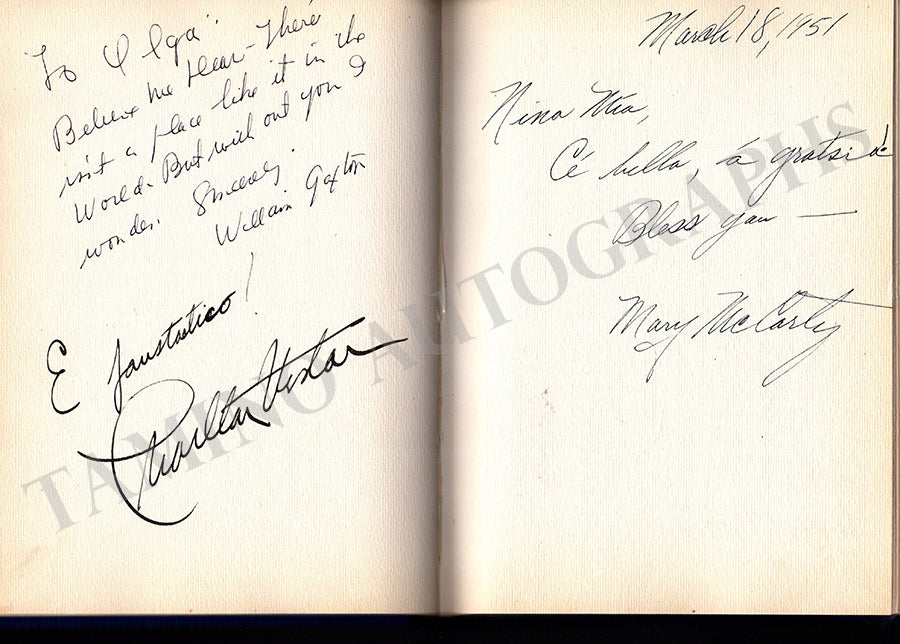 To Olga
Believe me Dear- There
isn't a place like it in the
World. But with out you I
wonder. Sincerely.
William Gaxton
E faustastico!
Charlton Heston
March 18, 1951
Nina Mia,
Cé bella, á gratsiá
Bless you —
Mary McCarty
TAMINO AUTOGRAPHS